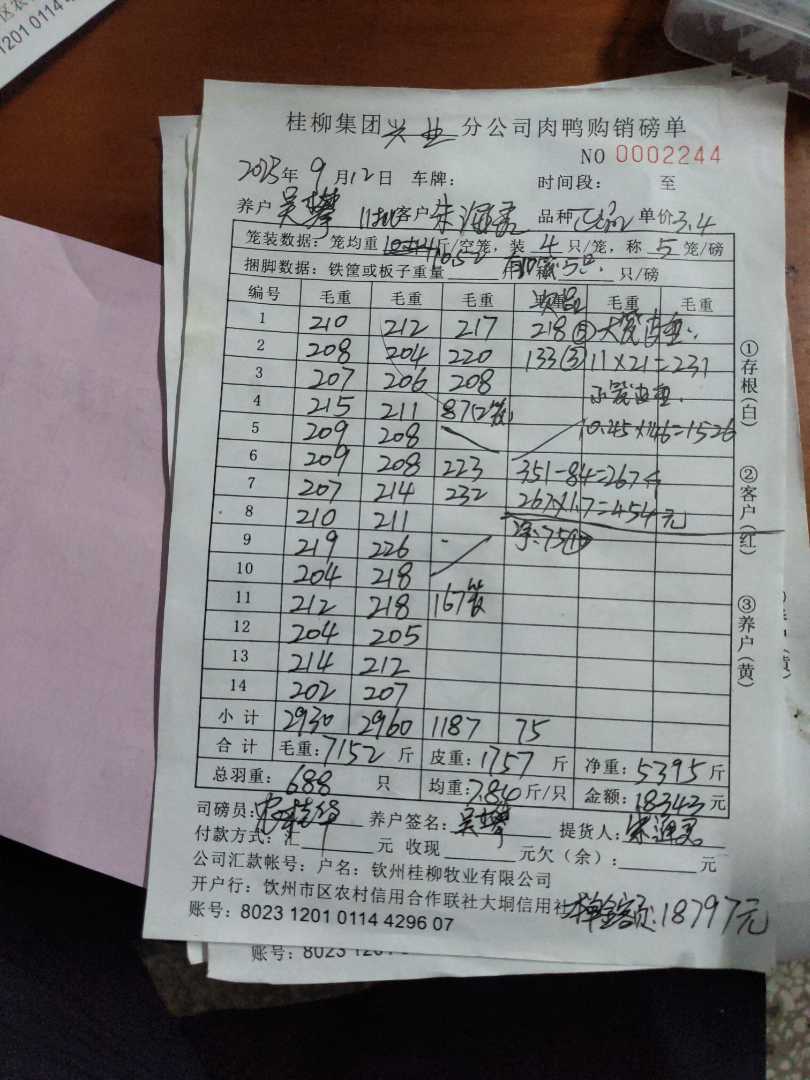 区农
1201 0114 4
桂柳集团兴业分公司肉鸭购销磅单
NO 0002244
2023年9月12日 车牌: 时间段: 至
养户吴攀 客户朱 品种 单价3.4
笼装数据: 笼均重 斤/空笼, 装4只/笼, 称5笼/磅
捆脚数据: 铁筐或板子重量 只/磅
编号 毛重 毛重 毛重 毛重 毛重
1 210 212 217 218
2 208 204 220 133(3) 11×21=231
3 207 206 208
4 215 211
5 209 208 10.45×146=1526
6 209 208 223 351-84=267斤
7 207 214 232 267×1.7=454元
8 210 211
9 219 226
10 204 218
11 212 218 167笼
12 204 205
13 214 212
14 202 207
小计 2930 2960 1187 75
合计 毛重:7152斤 皮重:1757斤 净重:5395斤
总羽重:688只 均重:7.84斤/只 金额:18343元
司磅员: 养户签名:吴攀 提货人:朱
付款方式:汇 元 收现 元欠(余): 元
公司汇款帐号:户名:钦州桂柳牧业有限公司
开户行:钦州市区农村信用合作联社大垌信用社
账号:8023 1201 0114 4296 07
金额:18797元
①存根(白)
②客户(红)
③养户(黄)
(黄)
账号:8023 1201